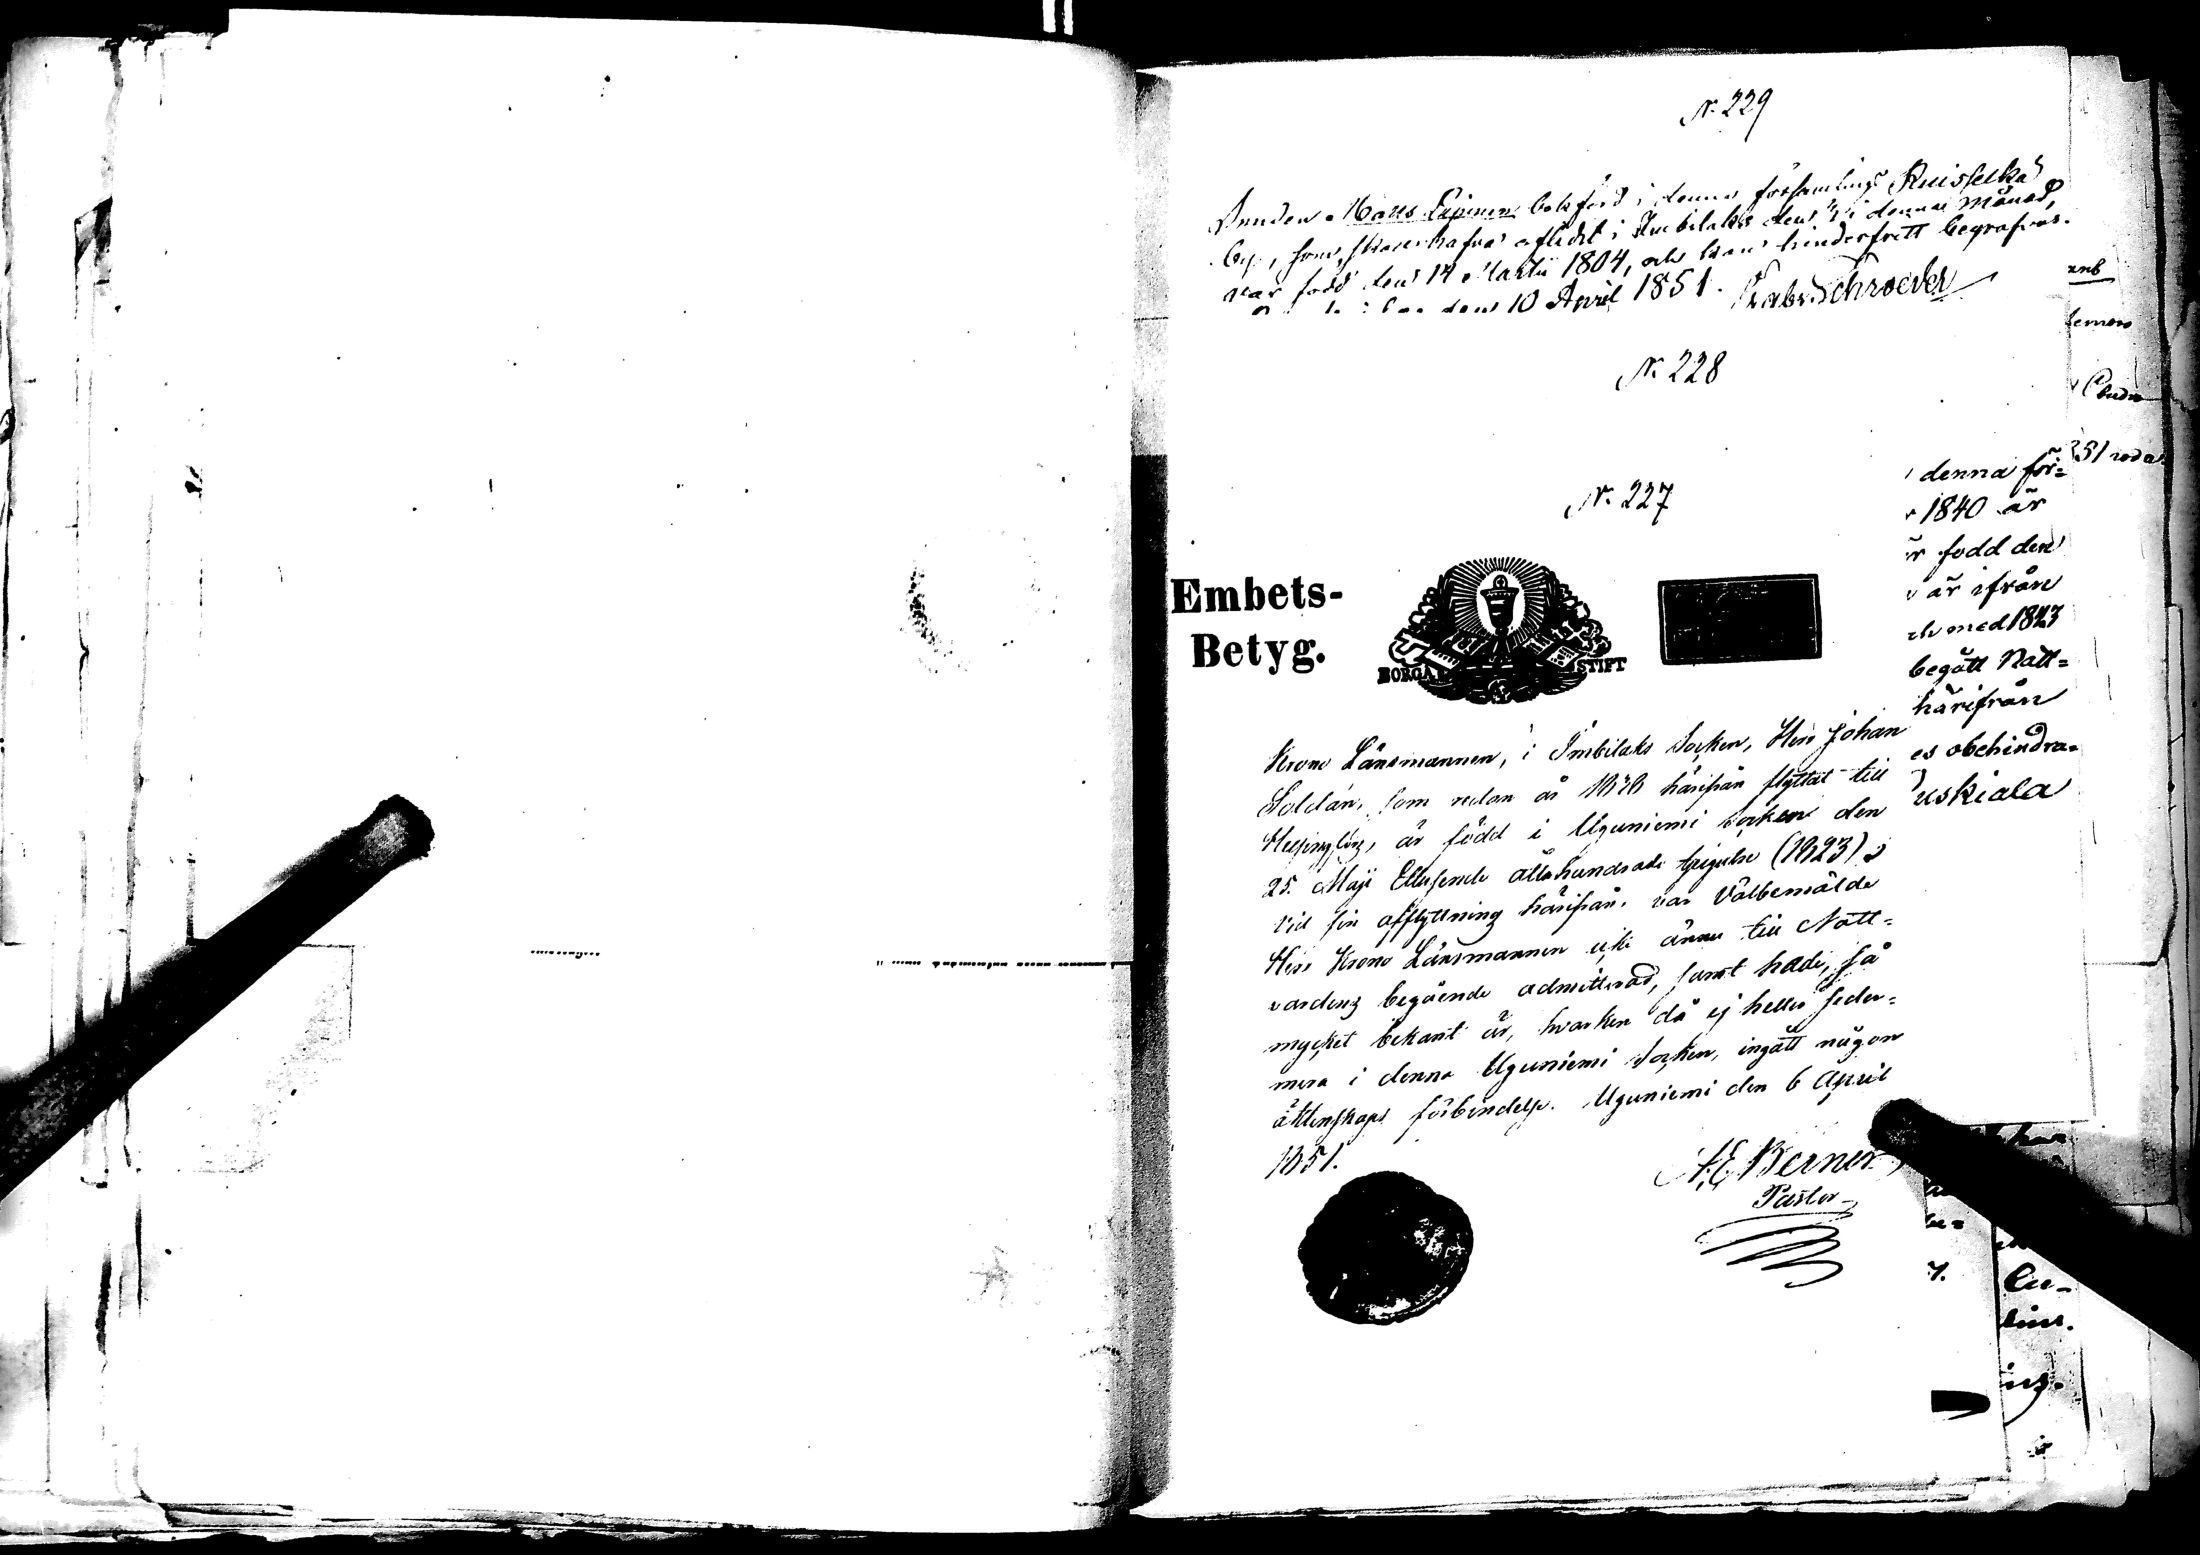 N. 229
Bonden Mats Lapinen bokförd i denna församlings Ruisselkä
by, som skall hafva aflidit i Imbilaks den i denna månad,
var född den 14 Martii 1804, och kan hinderfritt begrafvas.
den 10 April 1851. Gabr. Schroeder
N. 228
N. 227
denna för=
1840 är
född den
är ifrån
med 1843
begått Natt=
härifrån
obehindra=
uskiala
Embets-
Betyg.
BORGÅ STIFT
Krono Länsmannen, i Imbilaks Socken, Herr Johan
Soldán, som redan år 1838 härifrån flyttat till
Helsingfors, är född i Uguniemi socken den
25. Maji Ettusende åttahundrade tjugutre (1823);
vid sin afflyttning härifrån, var Välbemälde
Herr Krono Länsmannen icke ännu till Natt=
vardens begående admitterad, samt hade, så
mycket bekant är, hvarken då ej heller seder=
mera i denna Uguniemi Socken, ingått någon
äktenskaps förbindelse. Uguniemi den 6 April
1851.
A. E. Berner
Pastor
51
7.